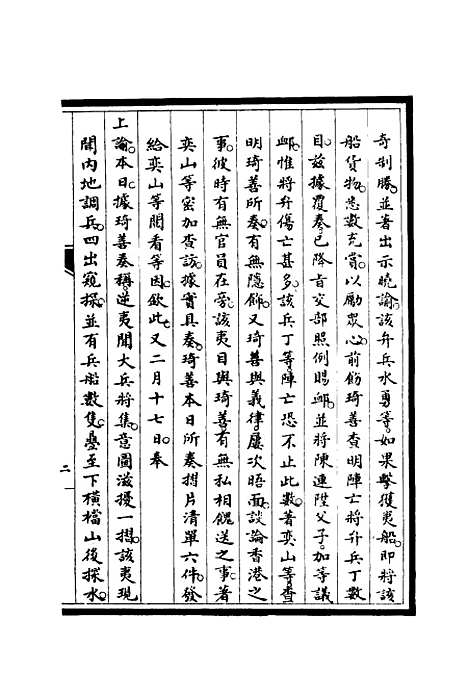 奇剖勝並著出示曉諭該弁兵水勇等如果擊獲夷船即將該
船貨物悉數充賞以勵眾心前飭琦善查明陣亡將弁兵丁數
目茲據覆奏已降旨交部照例賜卹並將陳連陞父子加等議
卹惟將弁傷亡甚多該兵丁等陣亡恐不止此數著奕山等查
明琦善所奏有無隱飾又琦善與義律屢次晤面談論香港之
事彼時有無官員在旁該夷目與琦善有無私相餽送之事著
奕山等密加查訪據實具奏琦善本日所奏摺片清單六件發
給奕山等閱看等因欽此又二月十七日奉
上諭本日據琦善奏稱逆夷聞大兵將集意圖滋擾一摺該夷現
聞內地調兵四出窺探並有兵船數隻疊至下橫檔山後探水
二